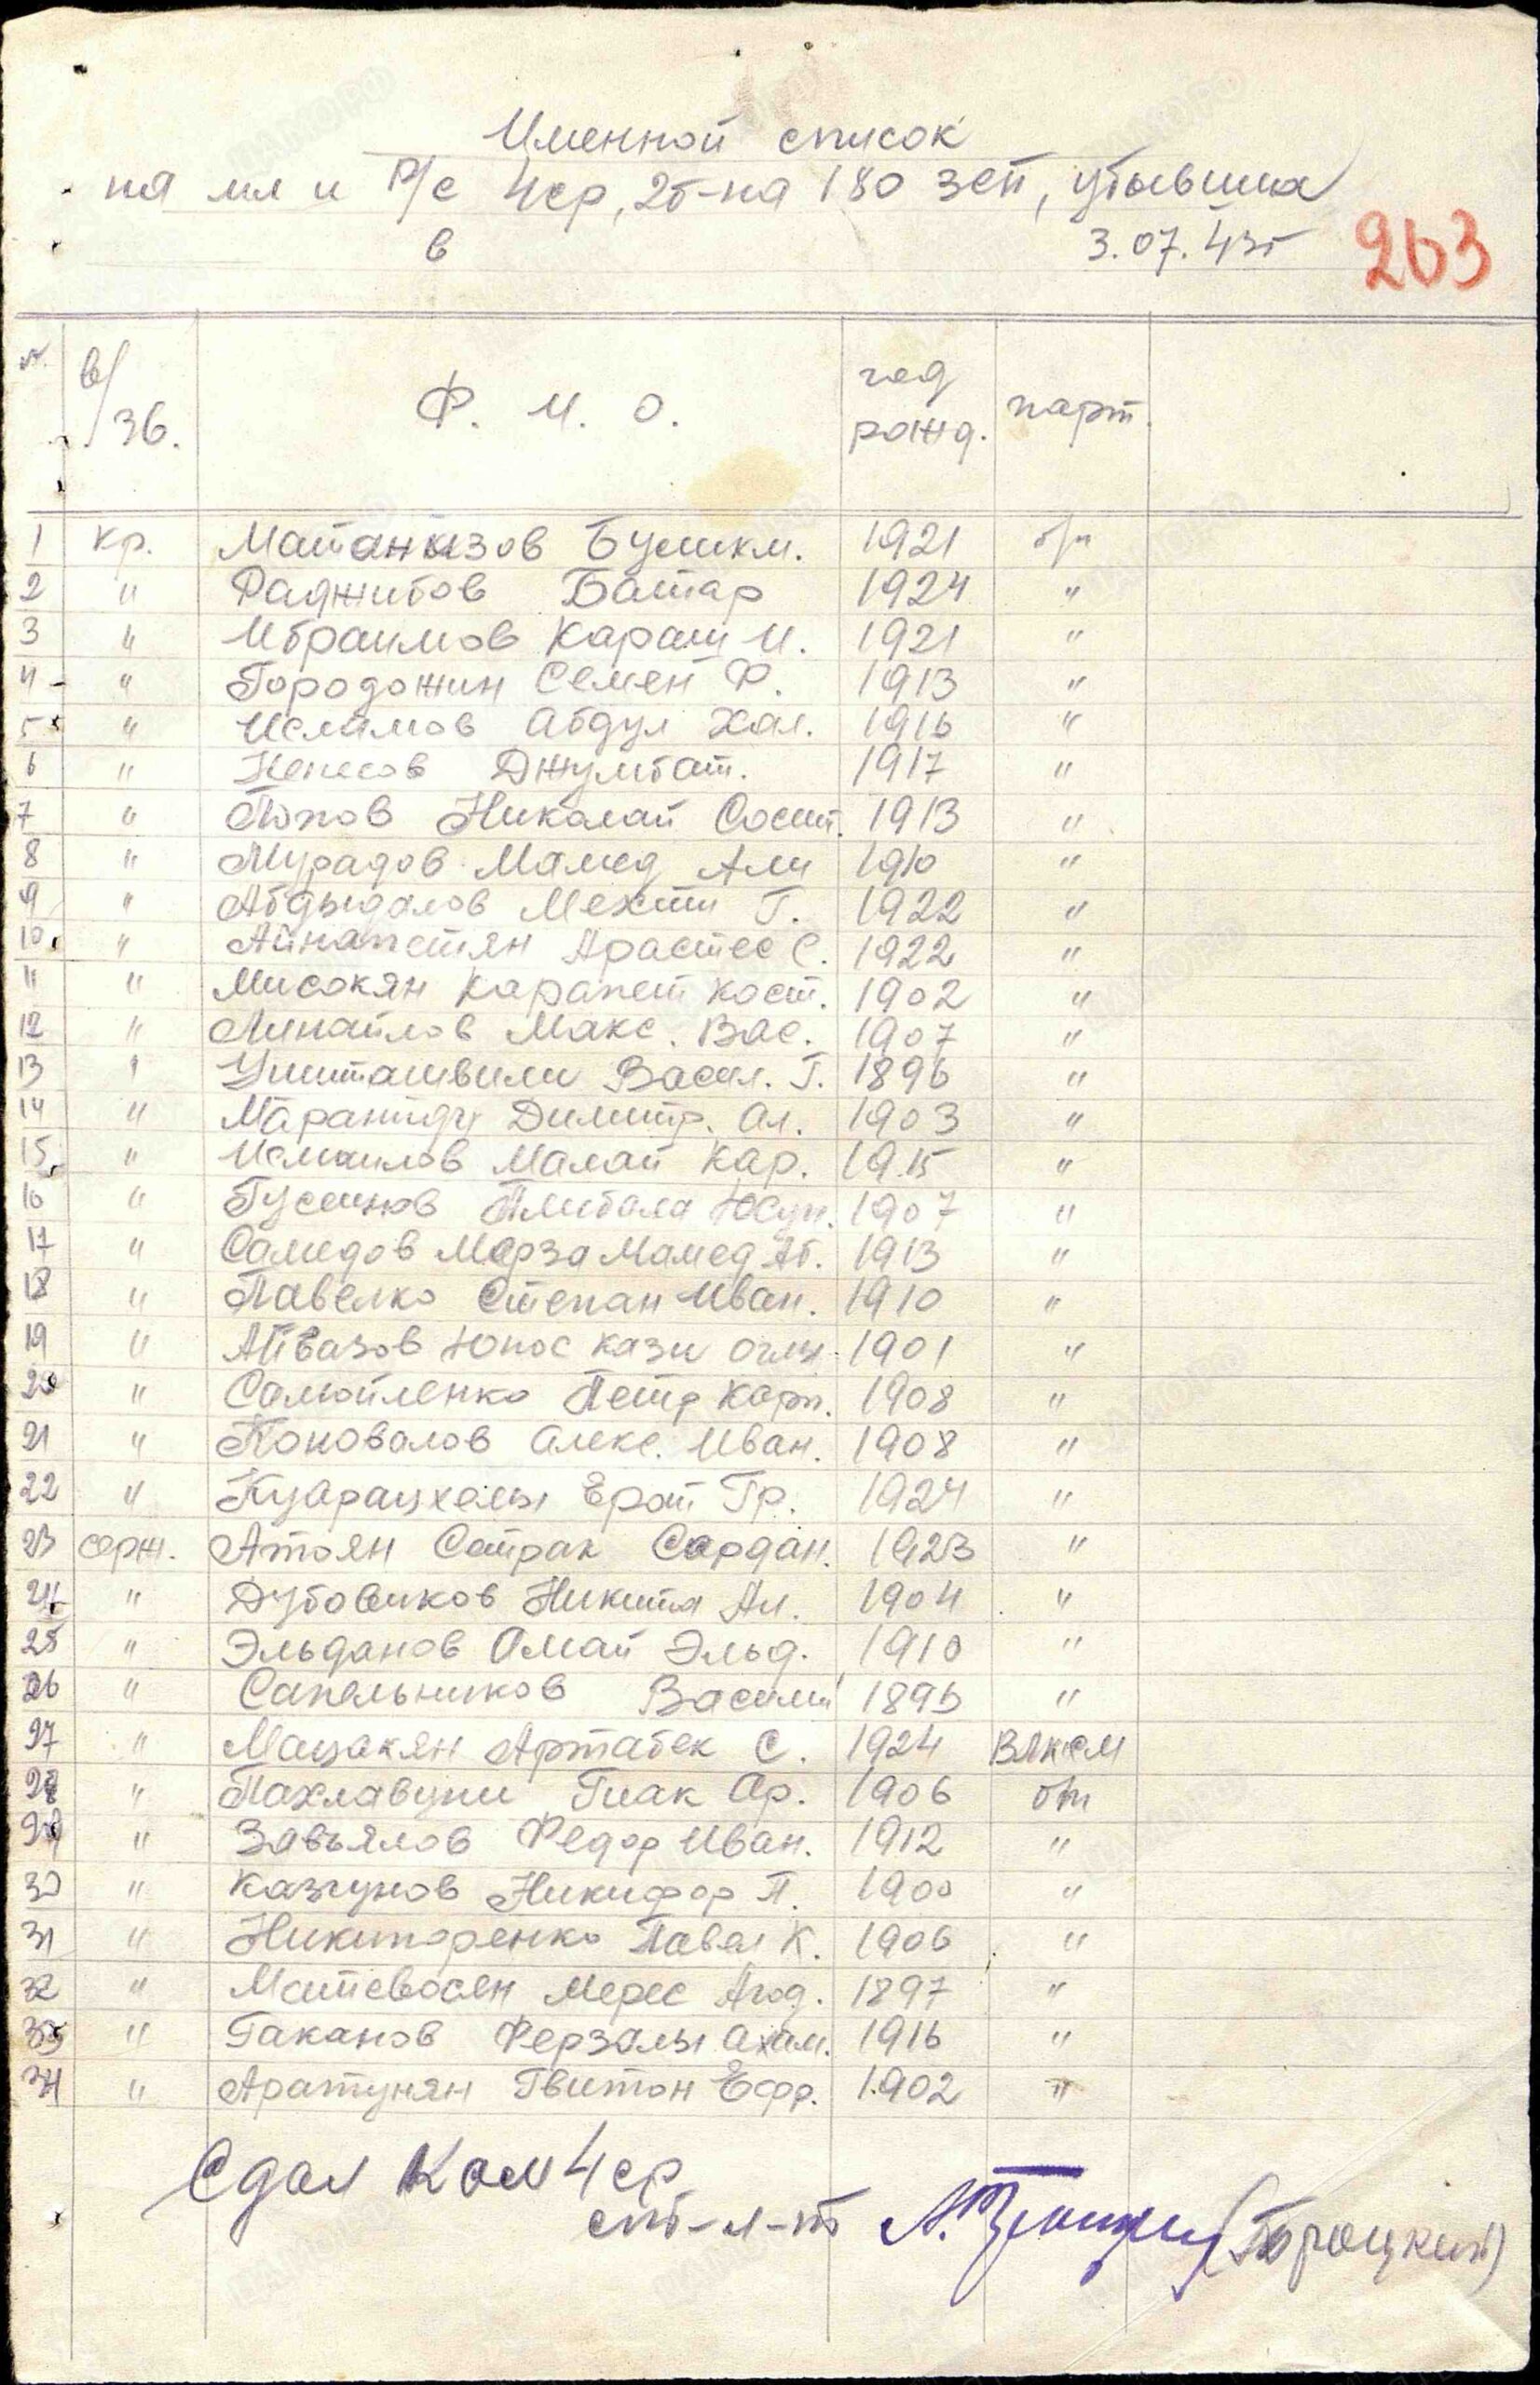 Именной список
на мл и р/с 4 ср, 2 б-на 180 зсп, убывших
в 3.07.43г
263
№ в/зв. Ф. И. О. год рожд. парт.
1 кр. Матаниязов Бушкм. 1921 б/п
2 " Раджибов Батар 1924 "
3 " Ибраимов Караш И. 1921 "
4 " Городожин Семен Ф. 1913 "
5 " Исламов Абдул Хал. 1916 "
6 " Кенесов Джумбат. 1917 "
7 " Попов Николай 1913 "
8 " Мурадов Мамед Али 1910 "
9 " Абдыдалов Мехти Г. 1922 "
10 " Айнапетян С. 1922 "
11 " Мисокян Карапет Кост. 1902 "
12 " Макс. Вас. 1907 "
13 " Васил. Г. 1896 "
14 " Димитр. Ал. 1903 "
15 " Исмаилов Малай Кар. 1915 "
16 " Гусейнов Алибала Юсуп. 1907 "
17 " Самедов Мирза Мамед Аб. 1913 "
18 " Павелко Степан Иван. 1910 "
19 " Айвазов Юнос Кази Оглы 1901 "
20 " Самойленко Петр Карп. 1908 "
21 " Коновалов Алекс. Иван. 1908 "
22 " Гр. 1924 "
23 серж. Атоян Сатрак Сардан. 1923 "
24 " Дубовиков Никита Ал. 1904 "
25 " Эльданов Омай Эльд. 1910 "
26 " Сапельников Василий 1895 "
27 " Мацакян Артабек С. 1924 ВЛКСМ
28 " Пахлавуни Гиак Ар. 1906 б/п
29 " Завьялов Федор Иван. 1912 "
30 " Казгунов Никифор П. 1900 "
31 " Никиторенко Павел К. 1906 "
32 " Матевосян Мерес Агад. 1897 "
33 " Гаканов Ферзалы Ахам. 1916 "
34 " Аратунян Гвитон Ефр. 1902 "
Сдал Ком 4 ср
ст-л-т